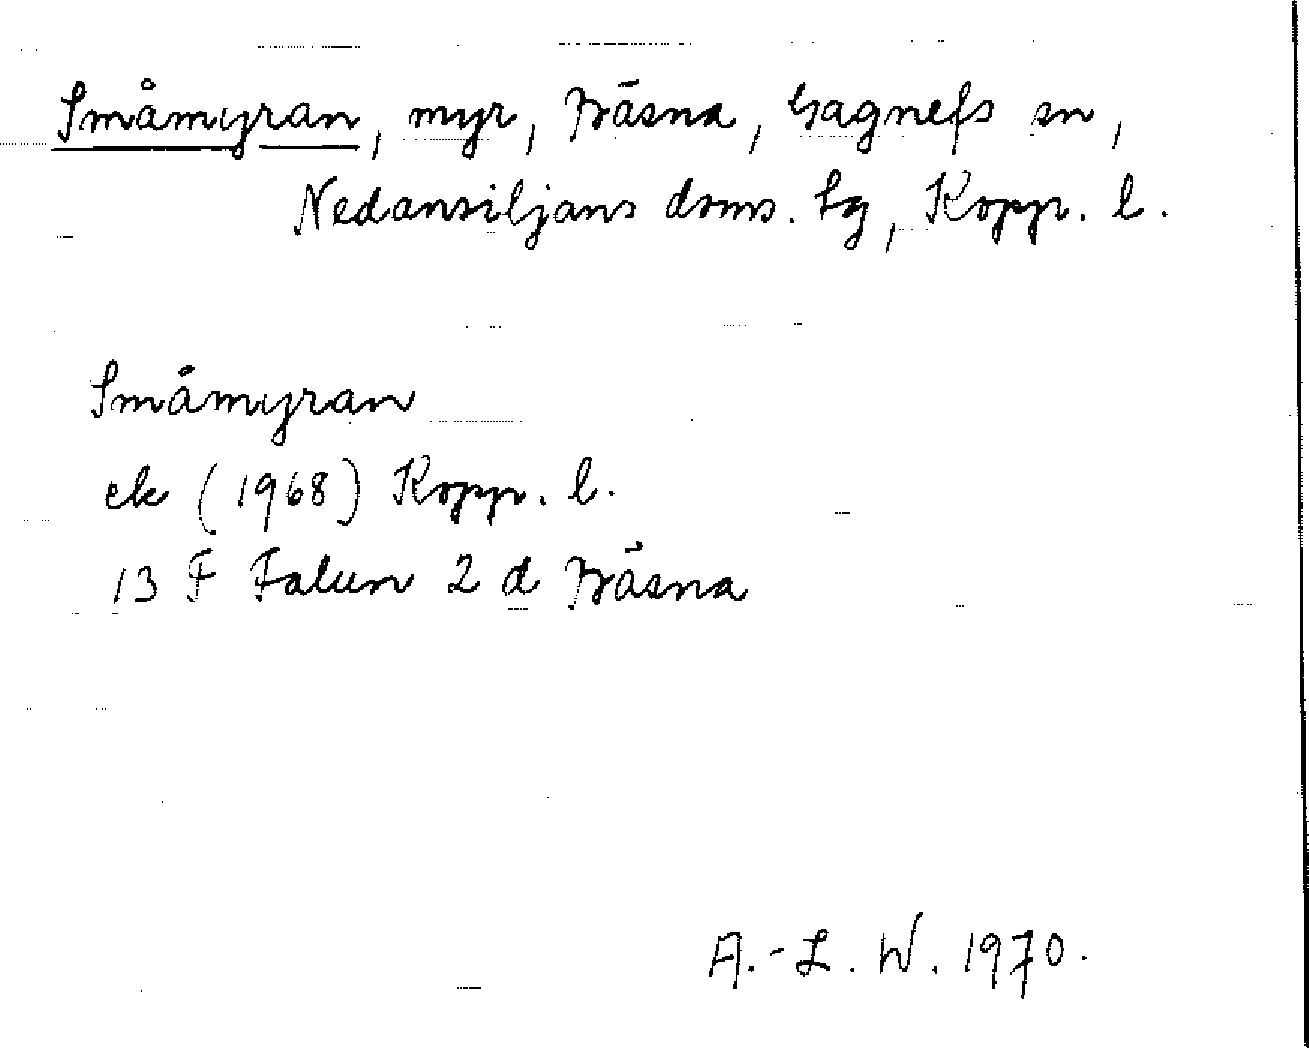 Småmyran, myr, Bäsna, Gagnefs sn,
Nedansiljans doms. tg, Kopp. l.
Småmyran
ek (1968) Kopp. l.
13 F Falun 2 d Bäsna
A.-L. W. 1970.